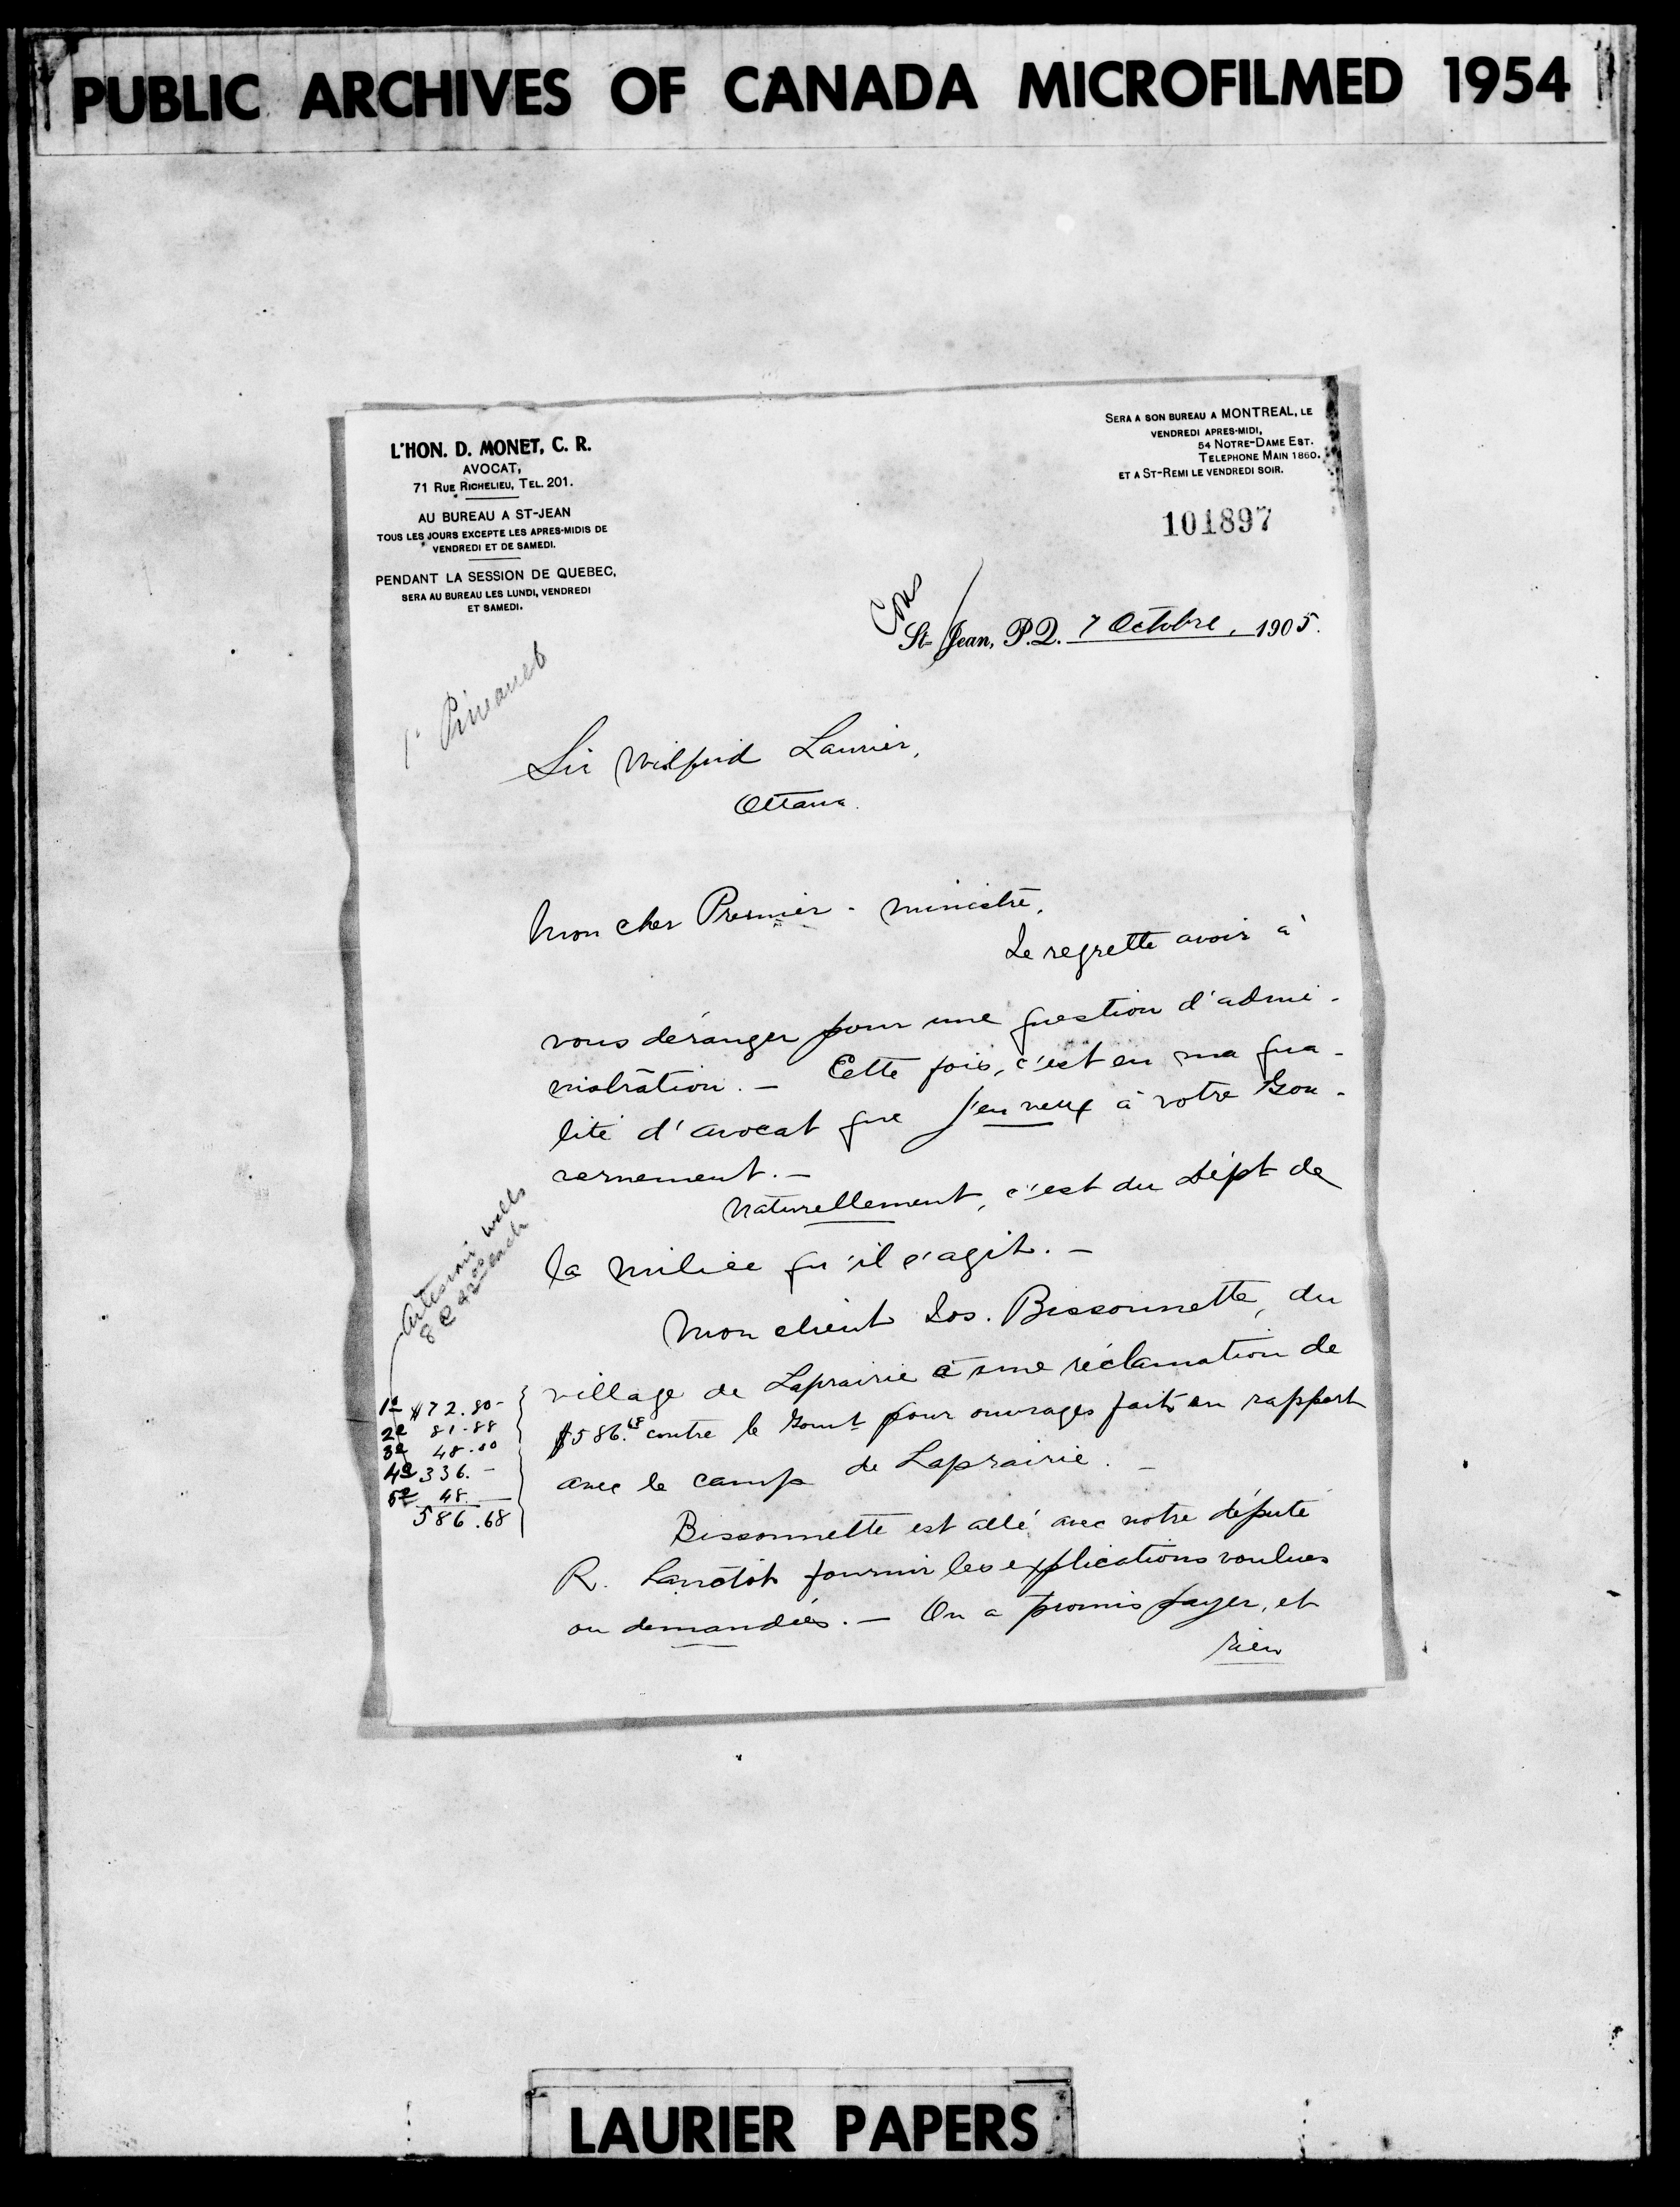 PUBLIC ARCHIVES OF CANADA MICROFILMED 1954
L'HON. D. MONET, C. R.
AVOCAT,
71 RUE RICHELIEU, TEL. 201.
AU BUREAU A ST-JEAN
TOUS LES JOURS EXCEPTE LES APRES-MIDIS DE
VENDREDI ET DE SAMEDI.
PENDANT LA SESSION DE QUEBEC,
SERA AU BUREAU LES LUNDI, VENDREDI
ET SAMEDI.
SERA A SON BUREAU A MONTREAL, LE
VENDREDI APRES-MIDI,
54 NOTRE-DAME EST.
TELEPHONE MAIN 1860.
ET A ST-REMI LE VENDREDI SOIR.
101897
St-Jean, P.Q. 7 Octobre, 1905.
Sir Wilfrid Laurier,
Ottawa.
Mon cher Premier-ministre,
Je regrette avoir à
vous déranger pour une question d'admi-
nistration. — Cette fois, c'est en ma qua-
lité d'avocat que j'en veux à votre Gou-
vernement. —
Naturellement, c'est du Dépt de
la milice qu'il s'agit. —
Mon client Jos. Bissonnette, du
village de Laprairie a une réclamation de
$586.68 contre le Gouvt pour ouvrages faits en rapport
avec le camp de Laprairie. —
Bissonnette est allé avec notre député
R. Lanctôt fournir les explications voulues
ou demandées. — On a promis payer, et
rien
Artesian wells
8 @ 42.00 each
1o $72.80-
2o 81.88
3o 48.00
4o 336.-
5o 48.-
586.68
LAURIER PAPERS